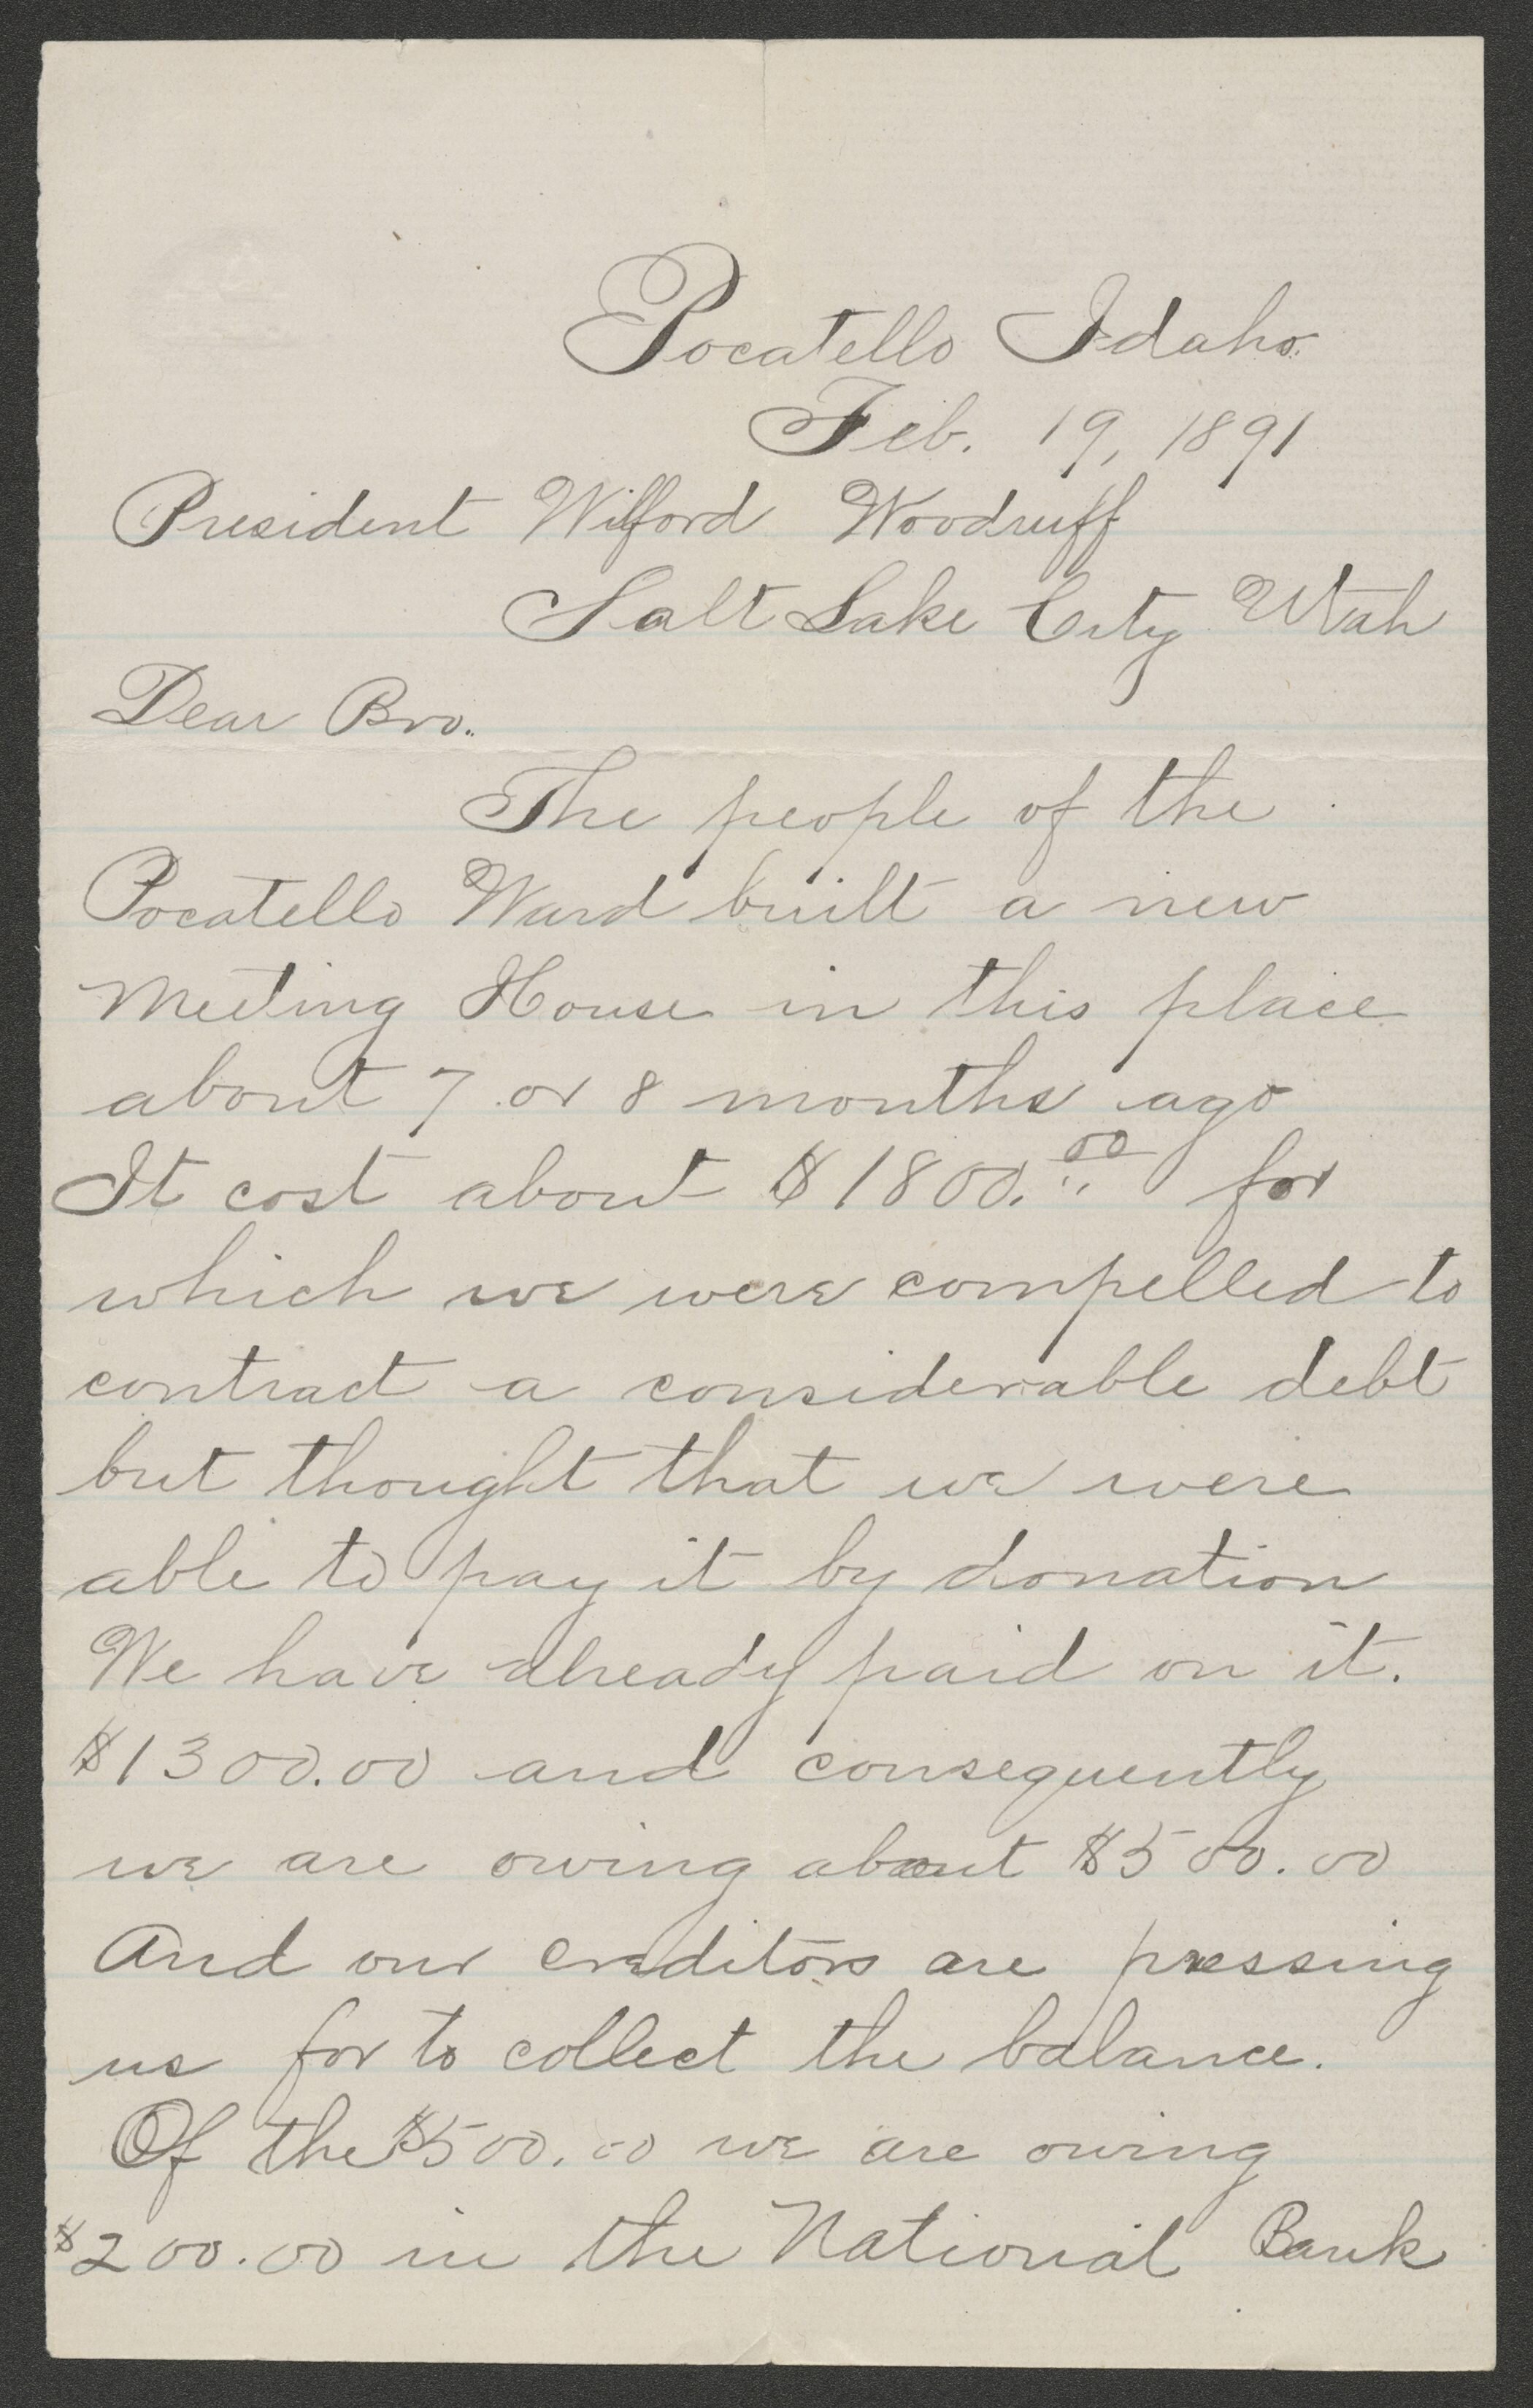 Pocatello Idaho.
Feb. 19, 1891
President Wilford Woodruff
Salt Lake City Utah
Dear Bro.
The people of the
Pocatello Ward built a new
Meeting House in this place
about 7 or 8 months ago
It cost about $1800.00 for
which we were compelled to
contract a considerable debt
but thought that we were
able to pay it by donation
We have already paid on it.
$1300.00 and consequently
we are owing about $500.00
And our creditors are pressing
us for to collect the balance.
Of the $500.00 we are owing
$200.00 in the National Bank